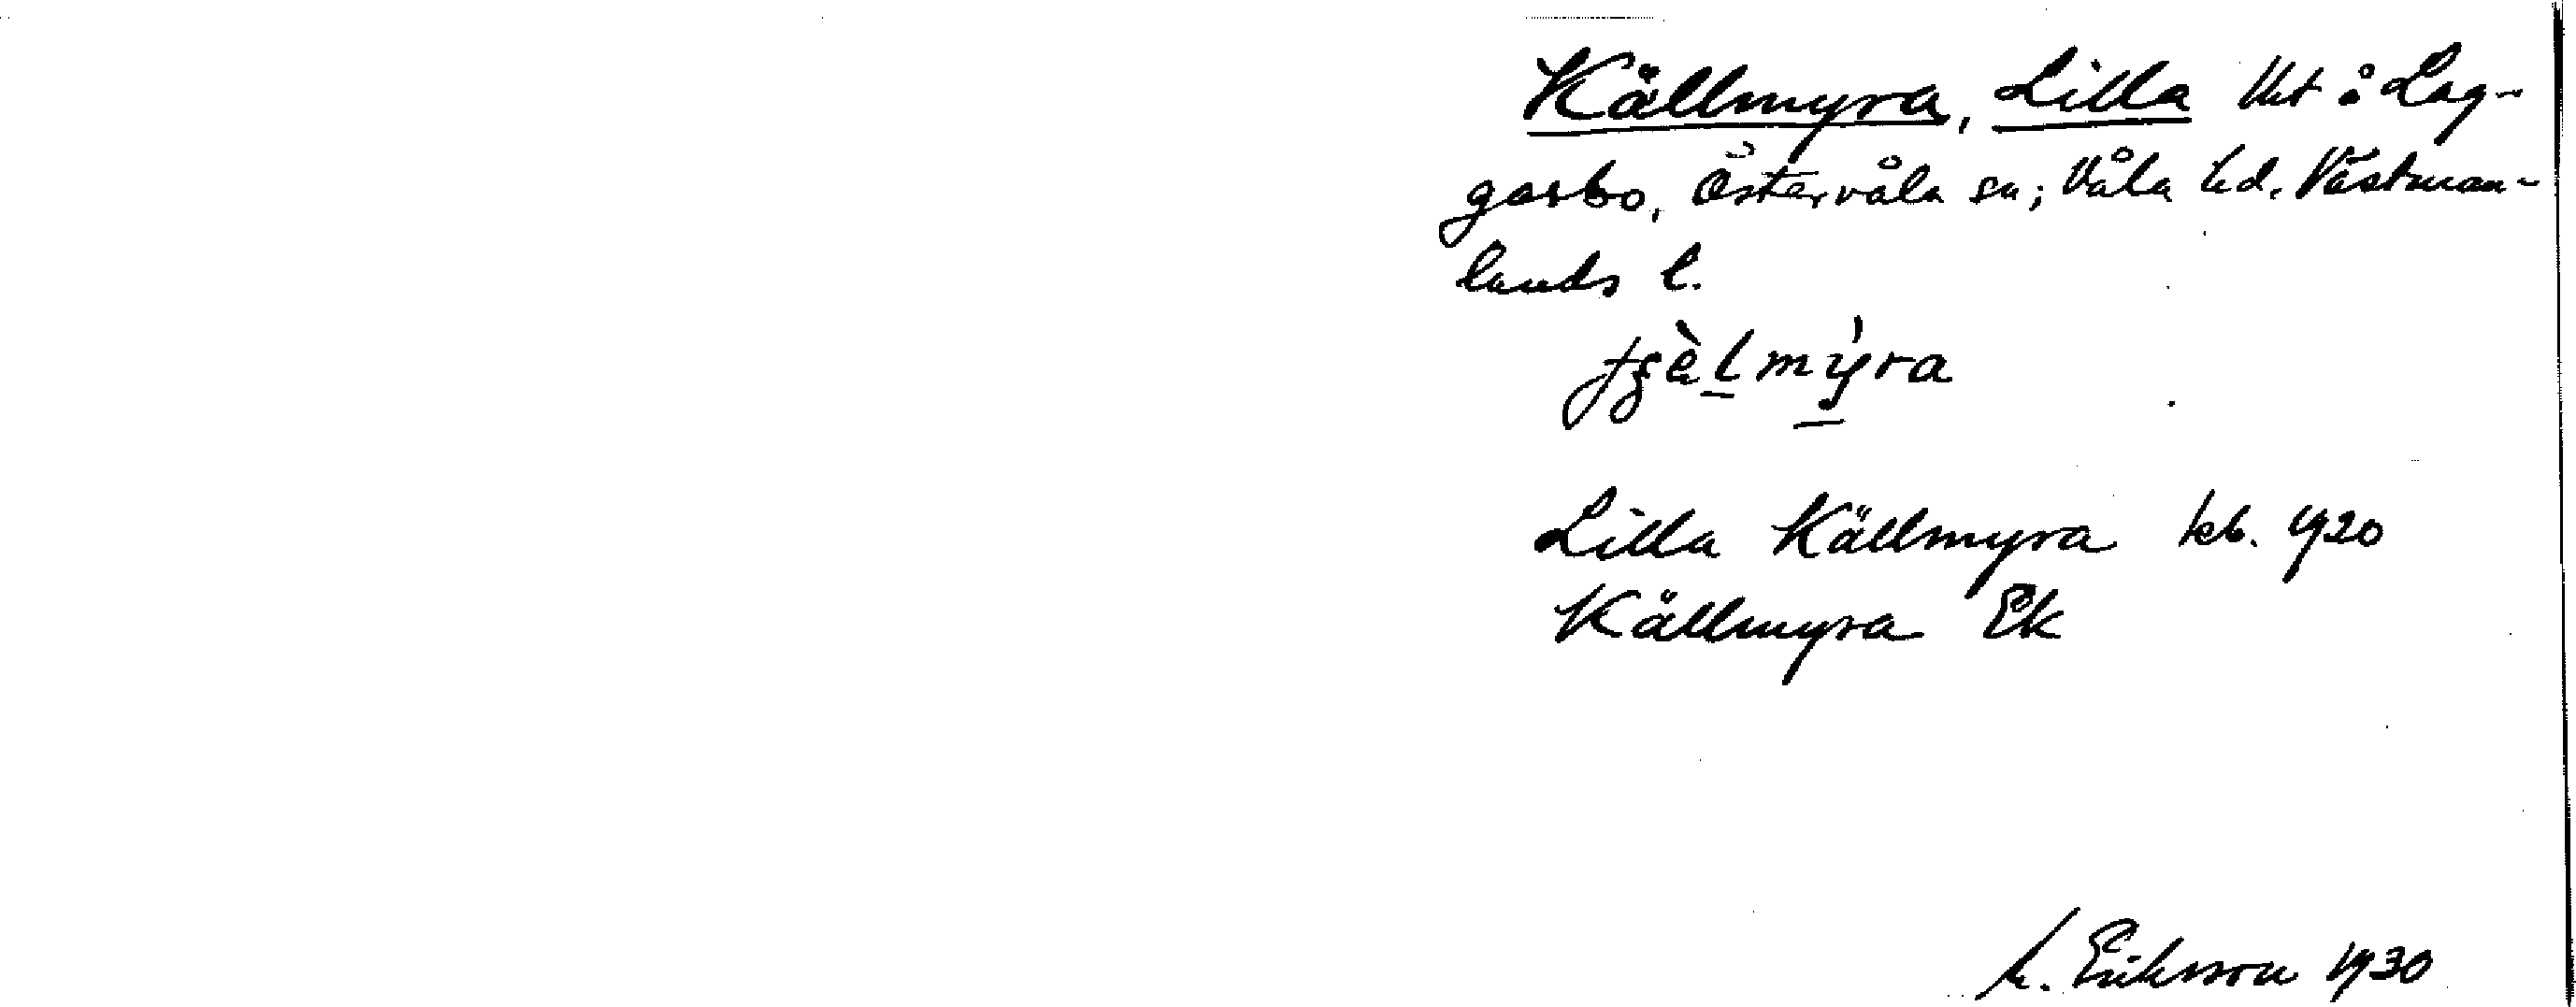 Källmyra, Lilla lht å Lag-
garbo, Östervåla sn; Våla hd. Västman-
lands l.
Lilla Källmyra kb. 1920
Källmyra Ek
Eriksson 1930